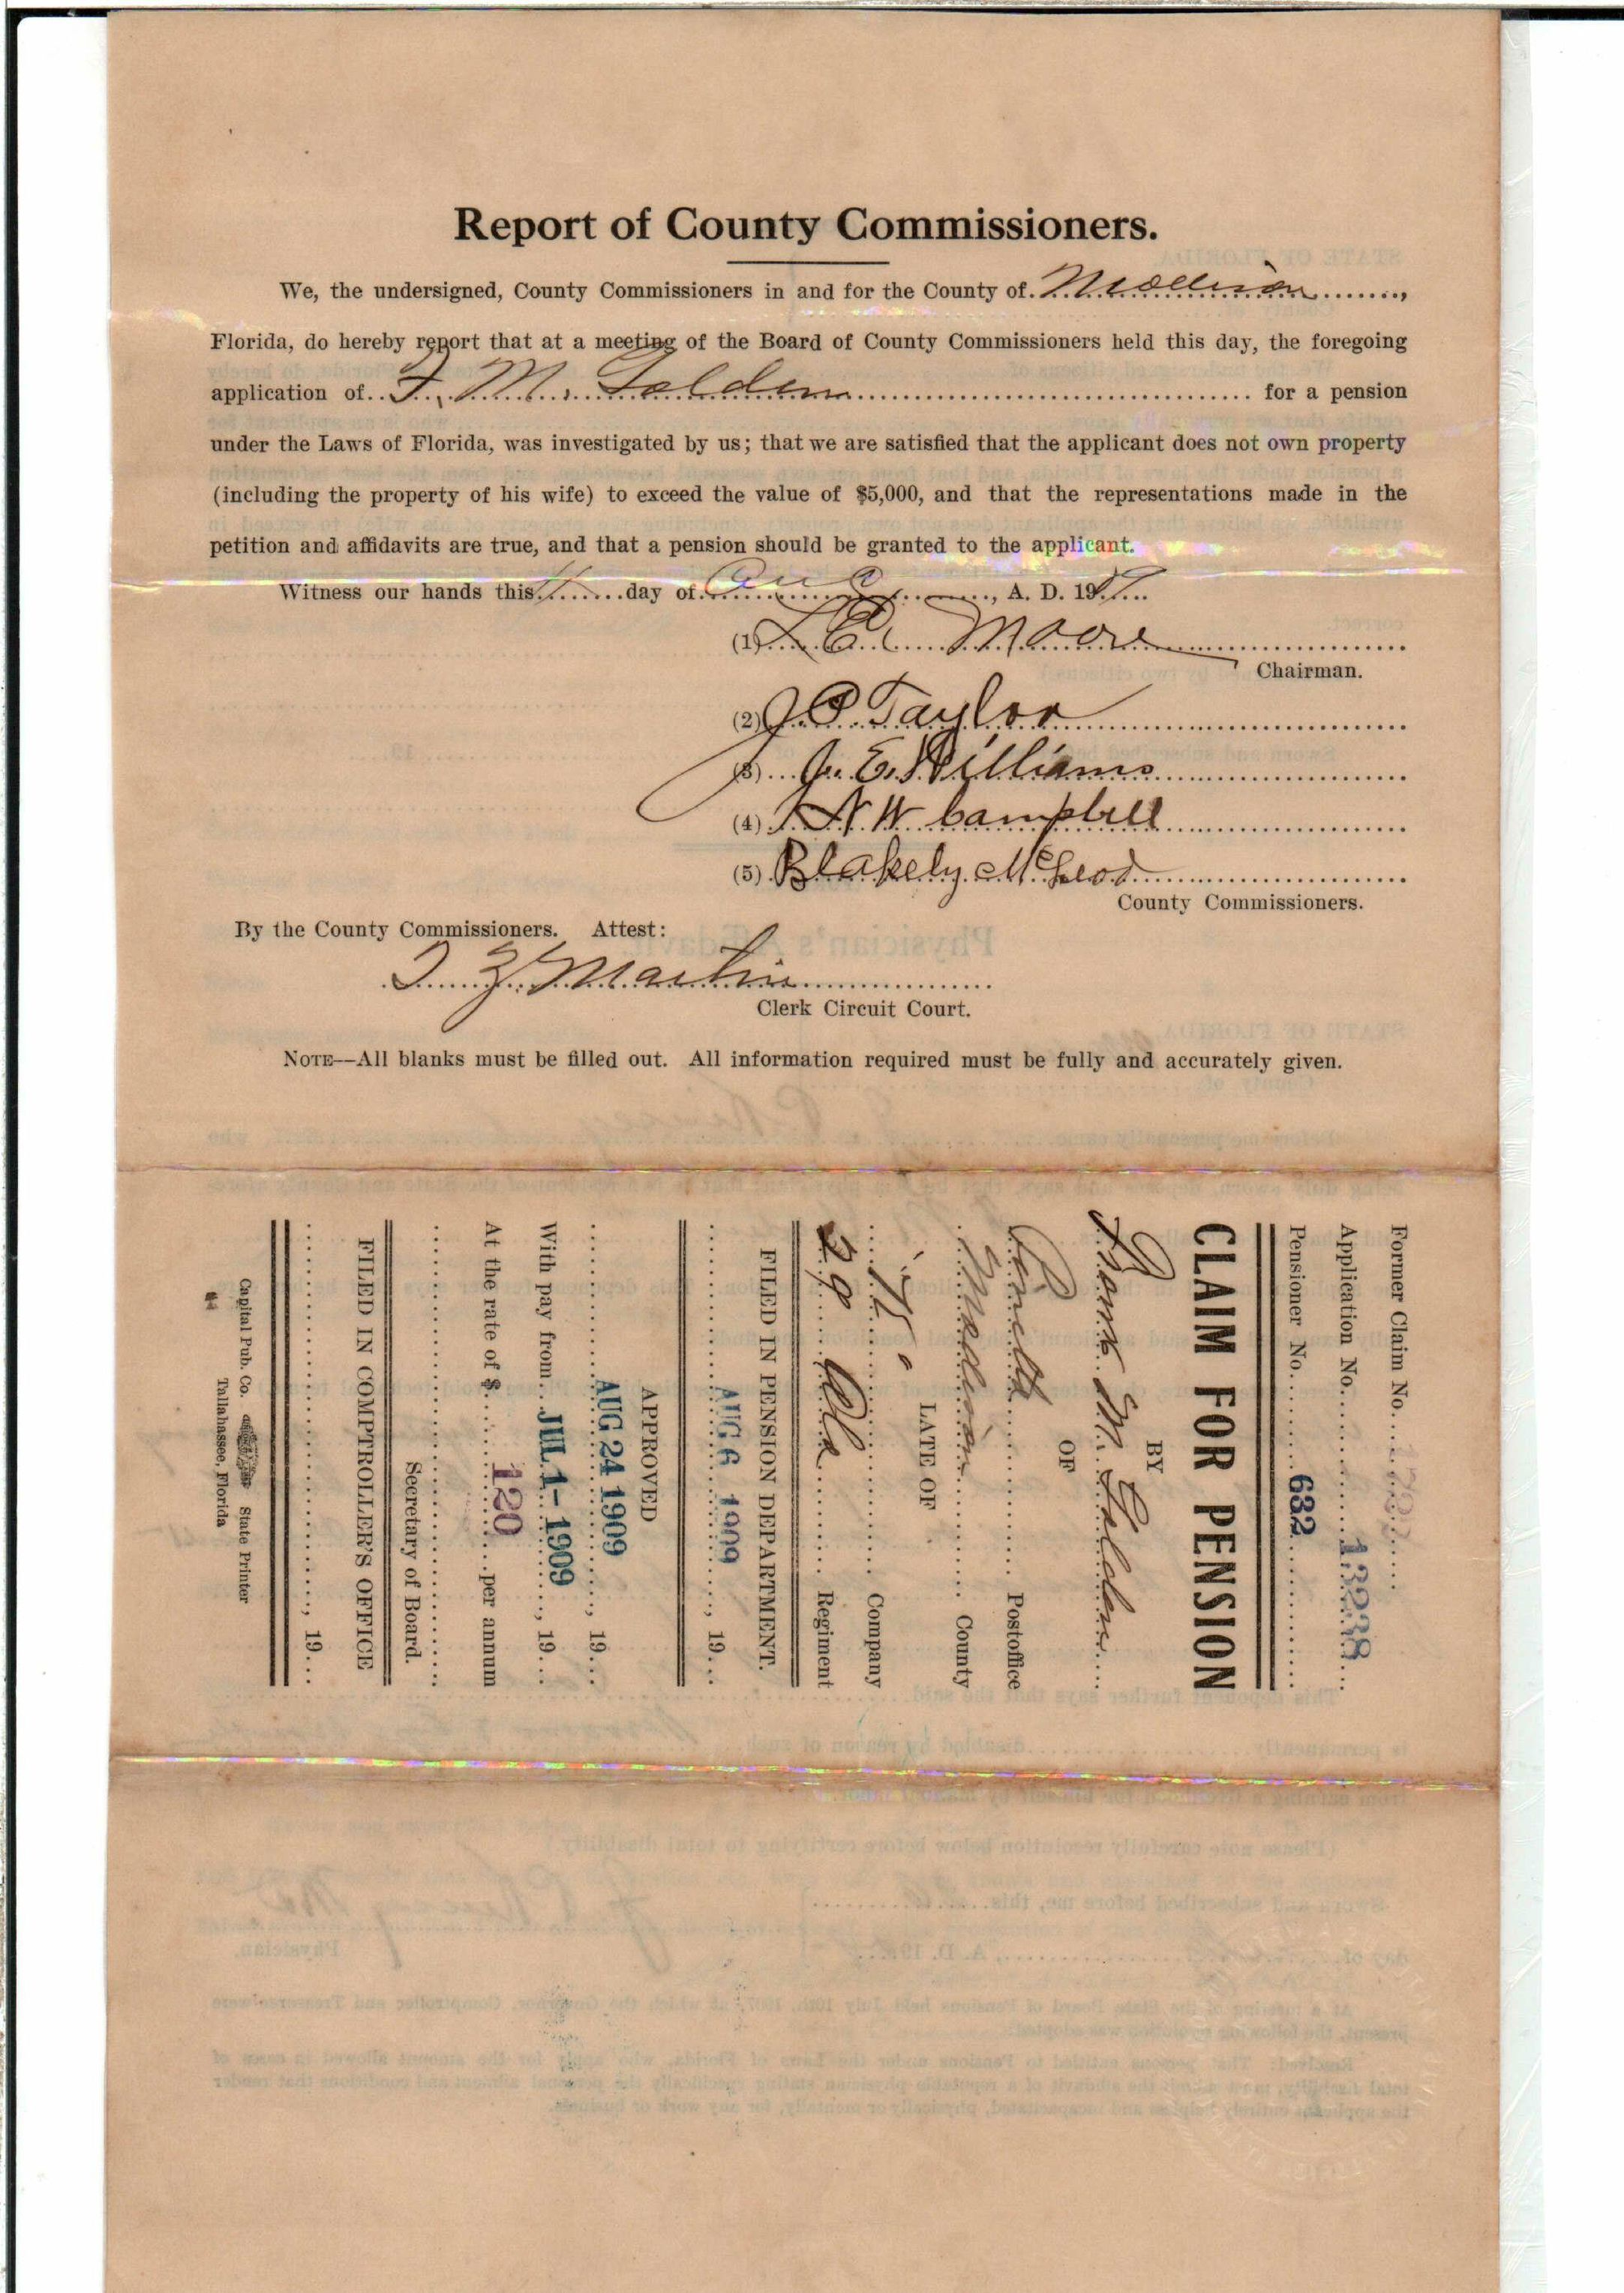 Report of County Commissioners.
We, the undersigned, County Commissioners in and for the County of Madison,
Florida, do hereby report that at a meeting of the Board of County Commissioners held this day, the foregoing
application of F. M. Golden for a pension
under the Laws of Florida, was investigated by us; that we are satisfied that the applicant does not own property
(including the property of his wife) to exceed the value of $5,000, and that the representations made in the
petition and affidavits are true, and that a pension should be granted to the applicant.
Witness our hands this day of Aug, A. D. 19
(1) Moore
Chairman.
(2) J P Taylor
(3) J. E. Williams
(4) N W Campbell
(5) Blakely McLeod
County Commissioners.
By the County Commissioners. Attest:
Martin
Clerk Circuit Court.
NOTE—All blanks must be filled out. All information required must be fully and accurately given.
Former Claim No.
Application No. 13238
Pensioner No. 632
CLAIM FOR PENSION
BY
Frank M. Golden
OF
Pinetta Postoffice
Madison County
LATE OF
"K" Company
29 Ala Regiment
FILED IN PENSION DEPARTMENT.
AUG 6 1909, 19
APPROVED
AUG 24 1909, 19
With pay from JUL 1- 1909, 19
At the rate of $ 120 per annum
Secretary of Board.
FILED IN COMPTROLLER'S OFFICE
, 19
Capital Pub. Co. State Printer
Tallahassee, Florida